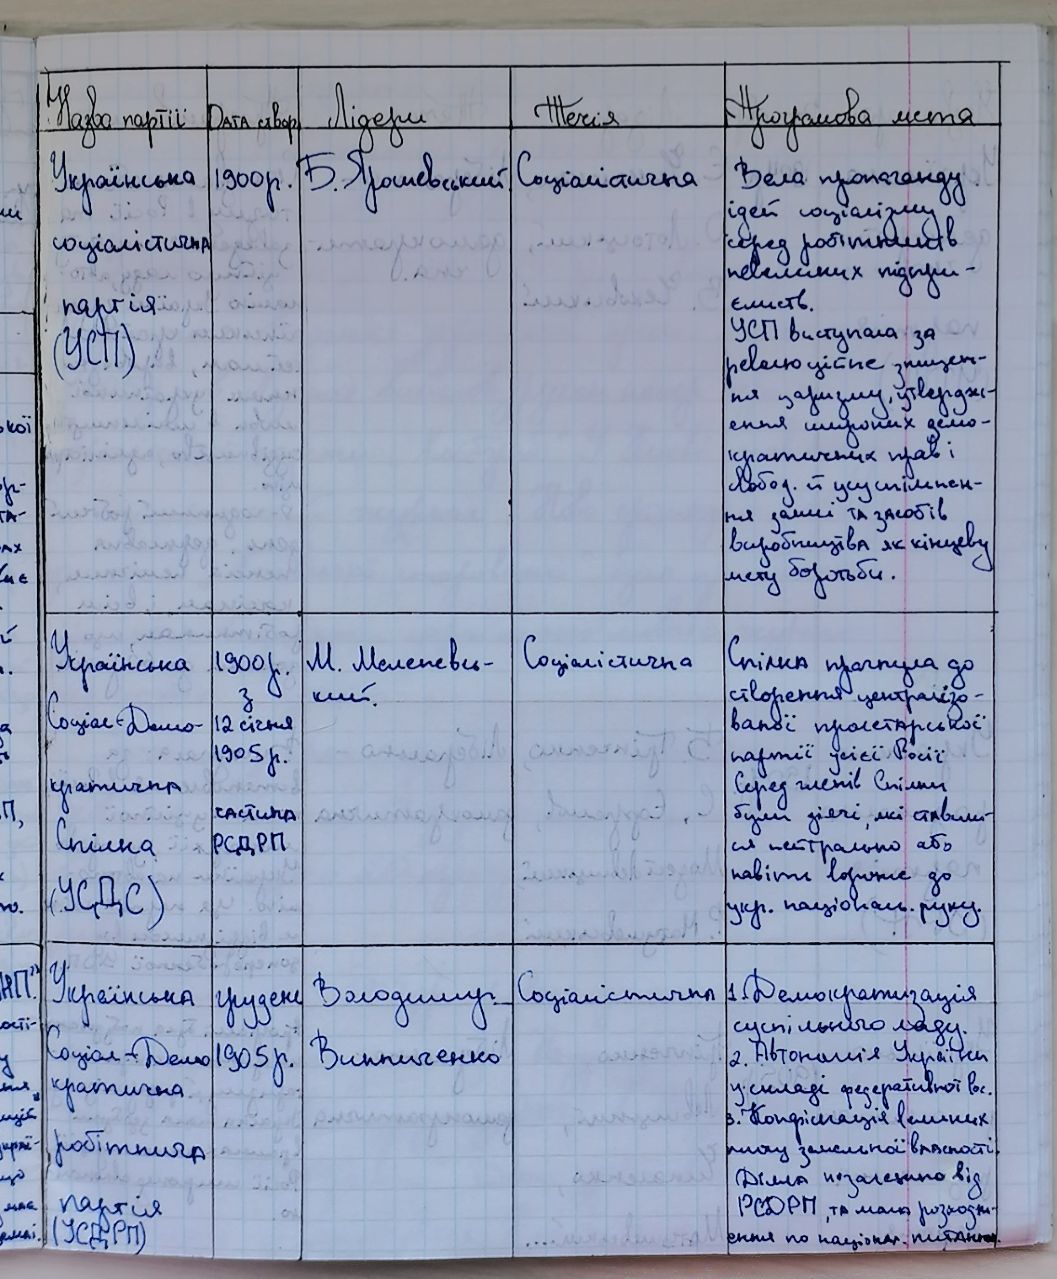 Назва партії Дата створ. Лідери Течія Програмова мета
Українська
соціалістична
партія
(УСП)
1900р.
Б. Ярошевський
Соціалістична
Вела пропаганду
ідей соціалізму
серед робітників
невеликих підпри-
ємств.
УСП виступала за
революційне знищен-
ня царизму, утвердж-
ення широких демо-
кратичних прав і
свобод й усуспільнен-
ня землі та засобів
виробництва як кінцеву
мету боротьби.
Українська
Соціал-Демо-
кратична
Спілка
(УСДС)
1900р.
з
12 січня
1905р.
частина
РСДРП
М. Меленевсь-
кий.
Соціалістична
Спілка прагнула до
створення централізо-
ваної пролетарської
партії усієї Росії
Серед членів Спілки
були діячі, які ставили-
ся нейтрально або
навіть вороже до
укр. національ. руху.
Українська
Соціал-Демо
кратична
робітнича
партія
(УСДРП)
грудень
1905р.
Володимир
Винниченко
Соціалістична
1. Демократизація
суспільного ладу.
2. Автономія України
у складі федеративної Рос.
3. Конфіскація великих
площ земельної власності.
Діяла незалежно від
РСДРП, та мала розходж-
ення по націонал. питанню.